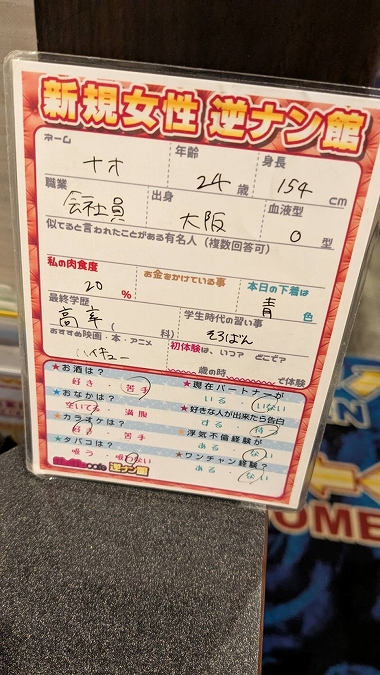 新規女性 逆ナン館
ネーム
年齢
身長
ナオ
24 歳
154 cm
職業
出身
血液型
会社員
大阪
O 型
似てると言われたことがある有名人（複数回答可）
私の肉食度
お金をかけている事
本日の下着は
20 %
青 色
最終学歴
学生時代の習い事
高卒（ 科）
そろばん
おすすめ映画・本・アニメ
初体験は、いつ？ どこで？
ハイキュー
歳の時 で体験
★お酒は？
★現在パートナーが
好き・苦手
いる・いない
★おなかは？
★好きな人が出来たら告白
空いてる・満腹
する・待つ
★カラオケは？
★浮気不倫経験が
好き・苦手
ある・ない
★タバコは？
★ワンチャン経験？
吸う・吸わない
ある・ない
逆ナン館
OME